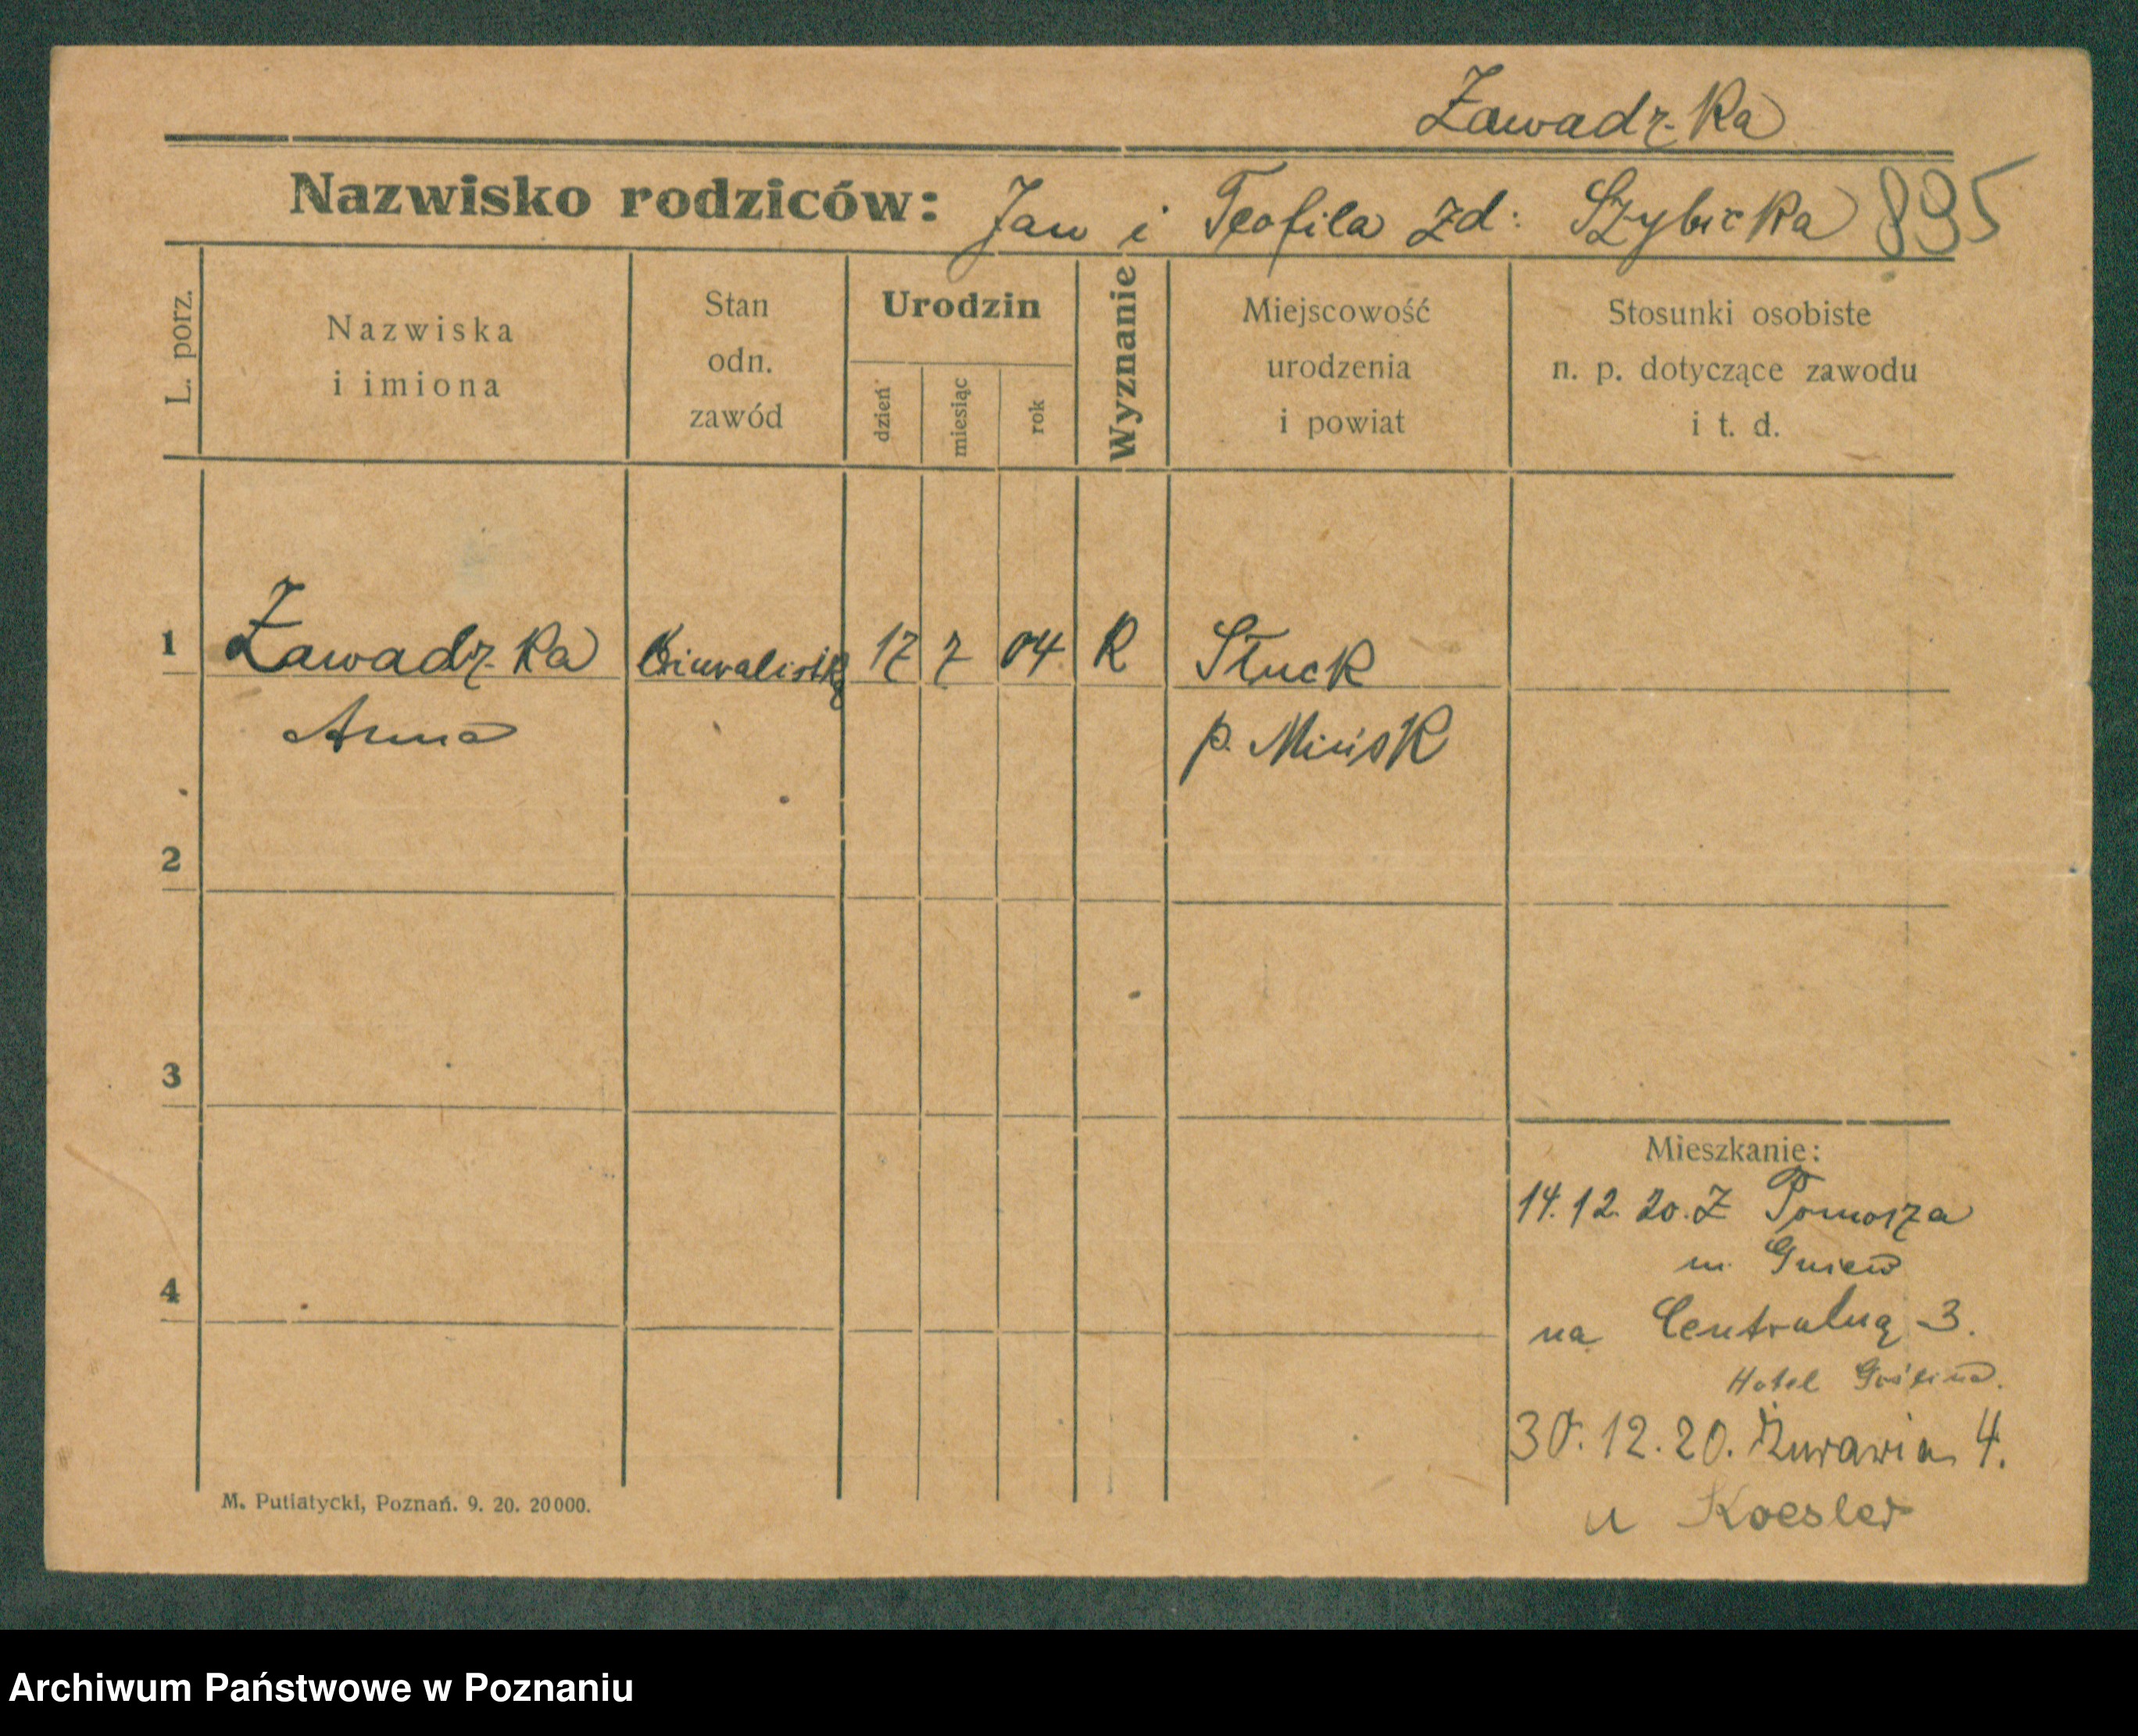 Zawadzka
Nazwisko rodziców: Jan i Teofila zd: Szybicka 895
L. porz.
Nazwiska
i imiona
Stan
odn.
zawód
Urodzin
dzień
miesiąc
rok
Wyznanie
Miejscowość
urodzenia
i powiat
Stosunki osobiste
n. p. dotyczące zawodu
i t. d.
1 Zawadzka Biuralistka 17 7 04 R Słuck
Anna p. Mińsk
2
3
Mieszkanie:
14. 12. 20. Z Pomorza
m. Gniew
4
na Centralną 3.
Hotel Gościnn.
30. 12. 20. Żurawia 4.
u Koesler
M. Putiatycki, Poznań. 9. 20. 20000.
Archiwum Państwowe w Poznaniu